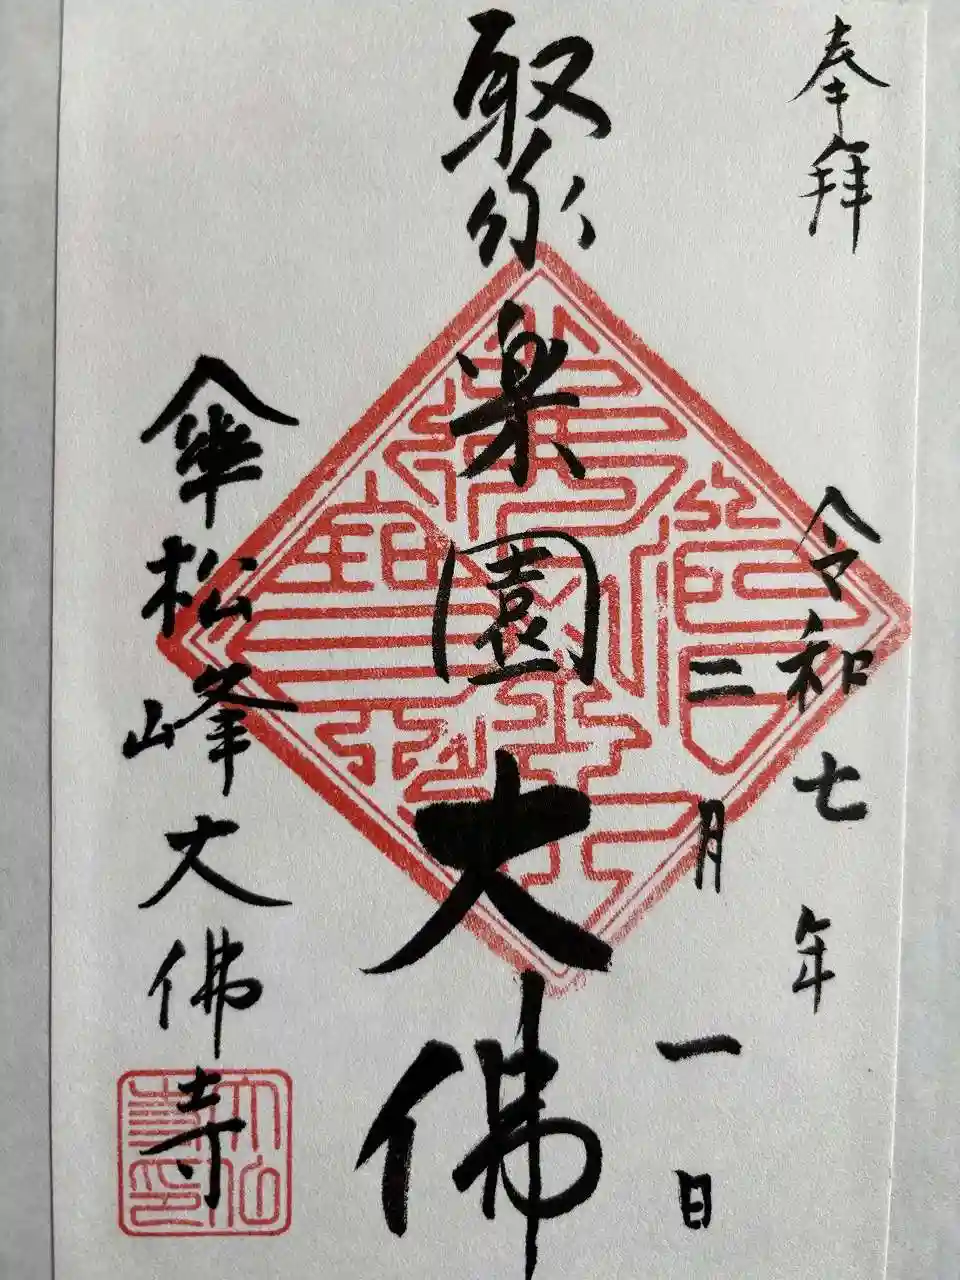 奉拜
令和七年
二月一日
聚楽園大佛
傘松峰大佛寺